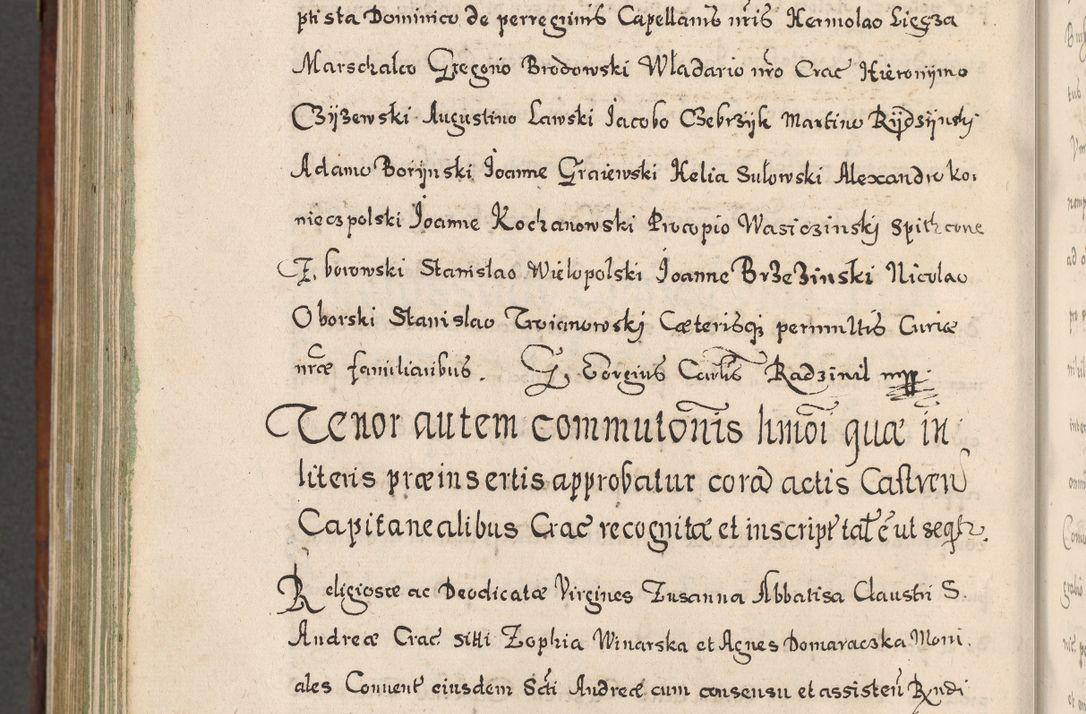 ptista Dominico de perregrinis Capellanis nr̄is Hermolao Lięgza
Marschalco Gregorio Brodowski Władario nr̄o Crac̄ Hieronijmo
Czÿzewski Augustino Lawski Jacobo Czebrzÿk Martino Rÿdzÿnskj
Adamo Borÿnski Joanne Graiewski Helia Sułowski Alexandro ko:
nieczpolski Joanne Kochanowski Procopio Wasiczinskj Spithcone
Z. borowski Stanislao Wielopolski Joanne BrzeZinski Nicolao
Oborski Stanislao Troianowskj Cæterisq; permultis Curiæ
nr̄æ familiaribus. G. Eorgius Car̄lis Radziuil mpp.
Tenor autem commutōnis hmōi quæ in
literis præinsertis approbatur corā actis Castren̄
Capitanealibus Crac̄ recognitæ et inscript̄ tal̄ ē ut seqr̄.
Religiosæ ac Deodicatæ Virgines Zusanna Abbatisa Claustri S.
Andreæ Crac̄ siti Zophia Winarska et Agnes Domaraczka Moni.
ales Conuent̄ eiusdem Sc̄ti Andreæ cum consensu et assisten̄ Rndi